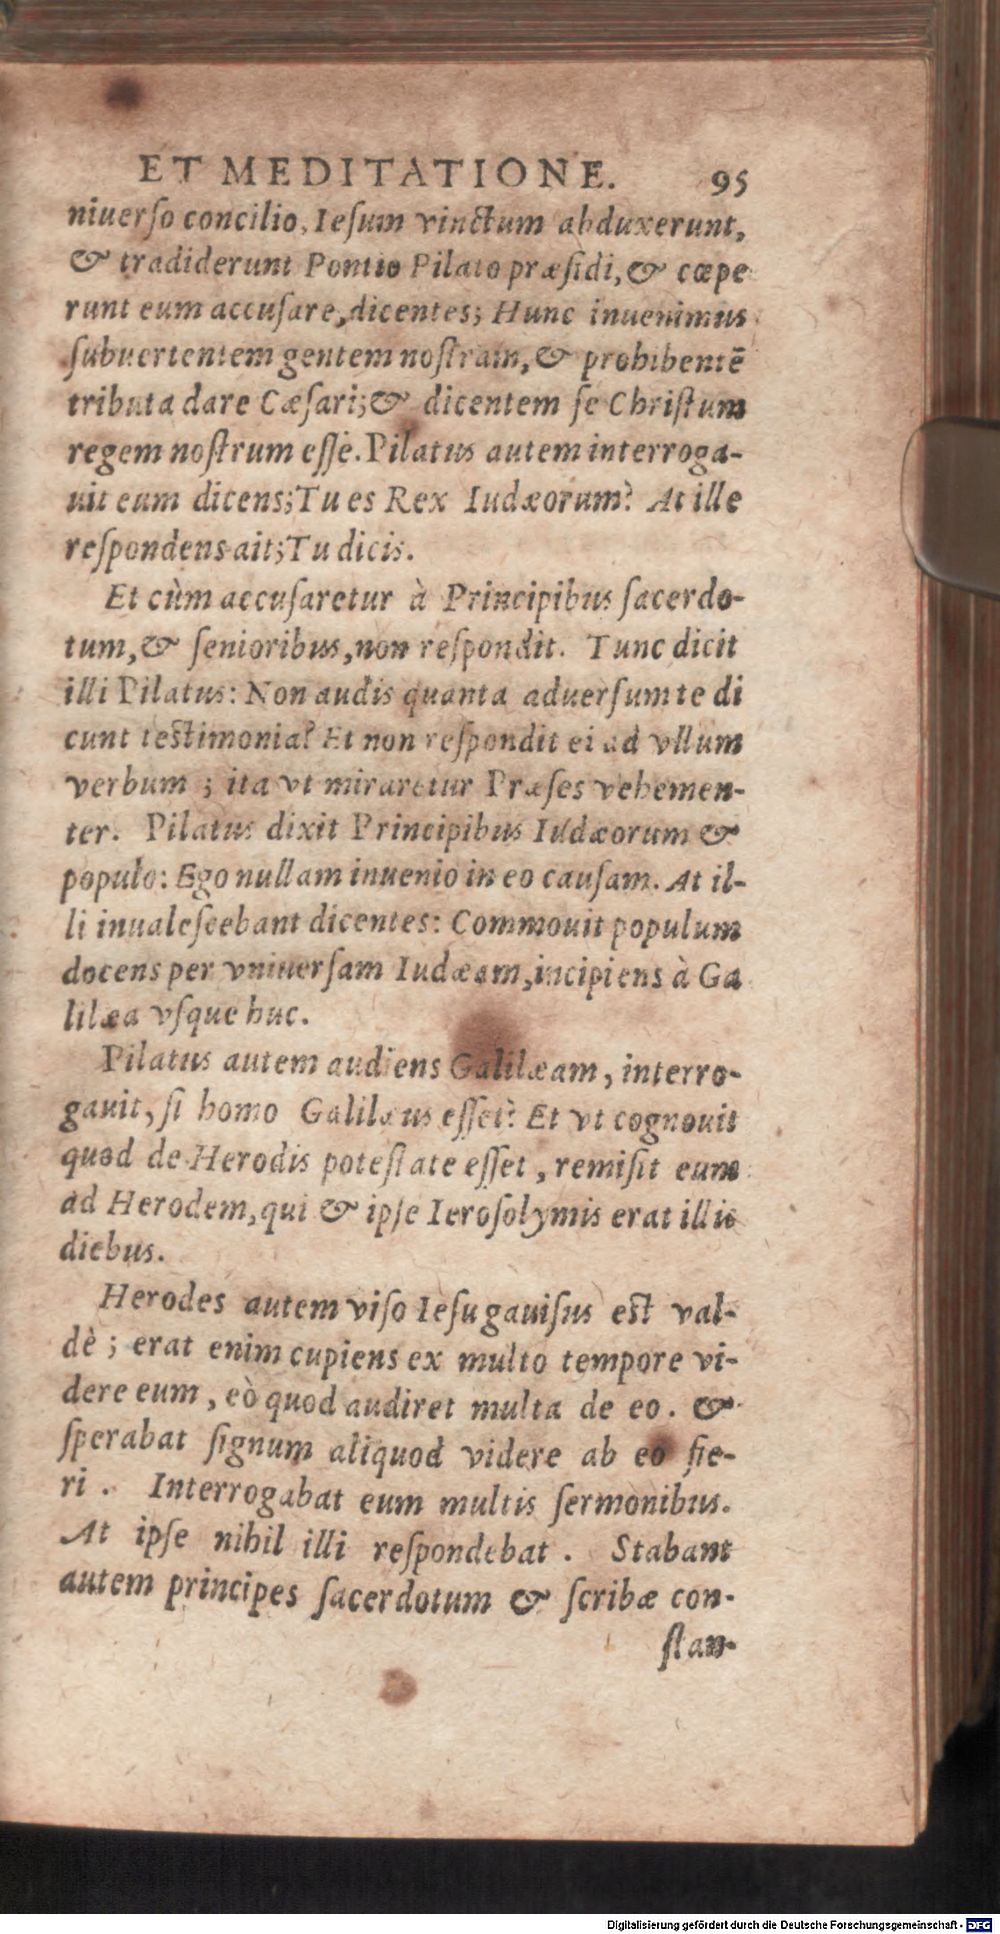 ET MEDITATIONE. 95
niuerſo concilio, Ieſum vinctum abduxerunt,
& tradiderunt Pontio Pilato præſidi, & cœpe
runt eum accuſare, dicentes; Hunc inuenimus
ſubuertentem gentem noſtram, & prohibentē
tributa dare Cæſari; & dicentem ſe Chriſtum
regem noſtrum eſſe. Pilatus autem interroga-
uit eum dicens; Tu es Rex Iudæorum? At ille
reſpondens ait; Tu dicis.
Et cùm accuſaretur à Principibus ſacerdo-
tum, & ſenioribus, non reſpondit. Tunc dicit
illi Pilatus: Non audis quanta aduerſum te di
cunt teſtimonia? Et non reſpondit ei ad vllum
verbum ; ita vt miraretur Præſes vehemen-
ter. Pilatus dixit Principibus Iudæorum &
populo: Ego nullam inuenio in eo cauſam. At il-
li inualeſcebant dicentes: Commouit populum
docens per vniuerſam Iudæam, incipiens à Ga
lilæa vſque huc.
Pilatus autem audiens Galilæam, interro-
gauit, ſi homo Galilæus eſſet? Et vt cognouit
quod de Herodis poteſtate eſſet, remiſit eum
ad Herodem, qui & ipſe Ieroſolymis erat illis
diebus.
Herodes autem viſo Ieſu gauiſus eſt val-
dè ; erat enim cupiens ex multo tempore vi-
dere eum, eò quod audiret multa de eo. &
ſperabat ſignum aliquod videre ab eo fie-
ri. Interrogabat eum multis ſermonibus.
At ipſe nihil illi reſpondebat. Stabant
autem principes ſacerdotum & ſcribæ con-
ſtan-
Digitalisierung gefördert durch die Deutsche Forschungsgemeinschaft - DFG